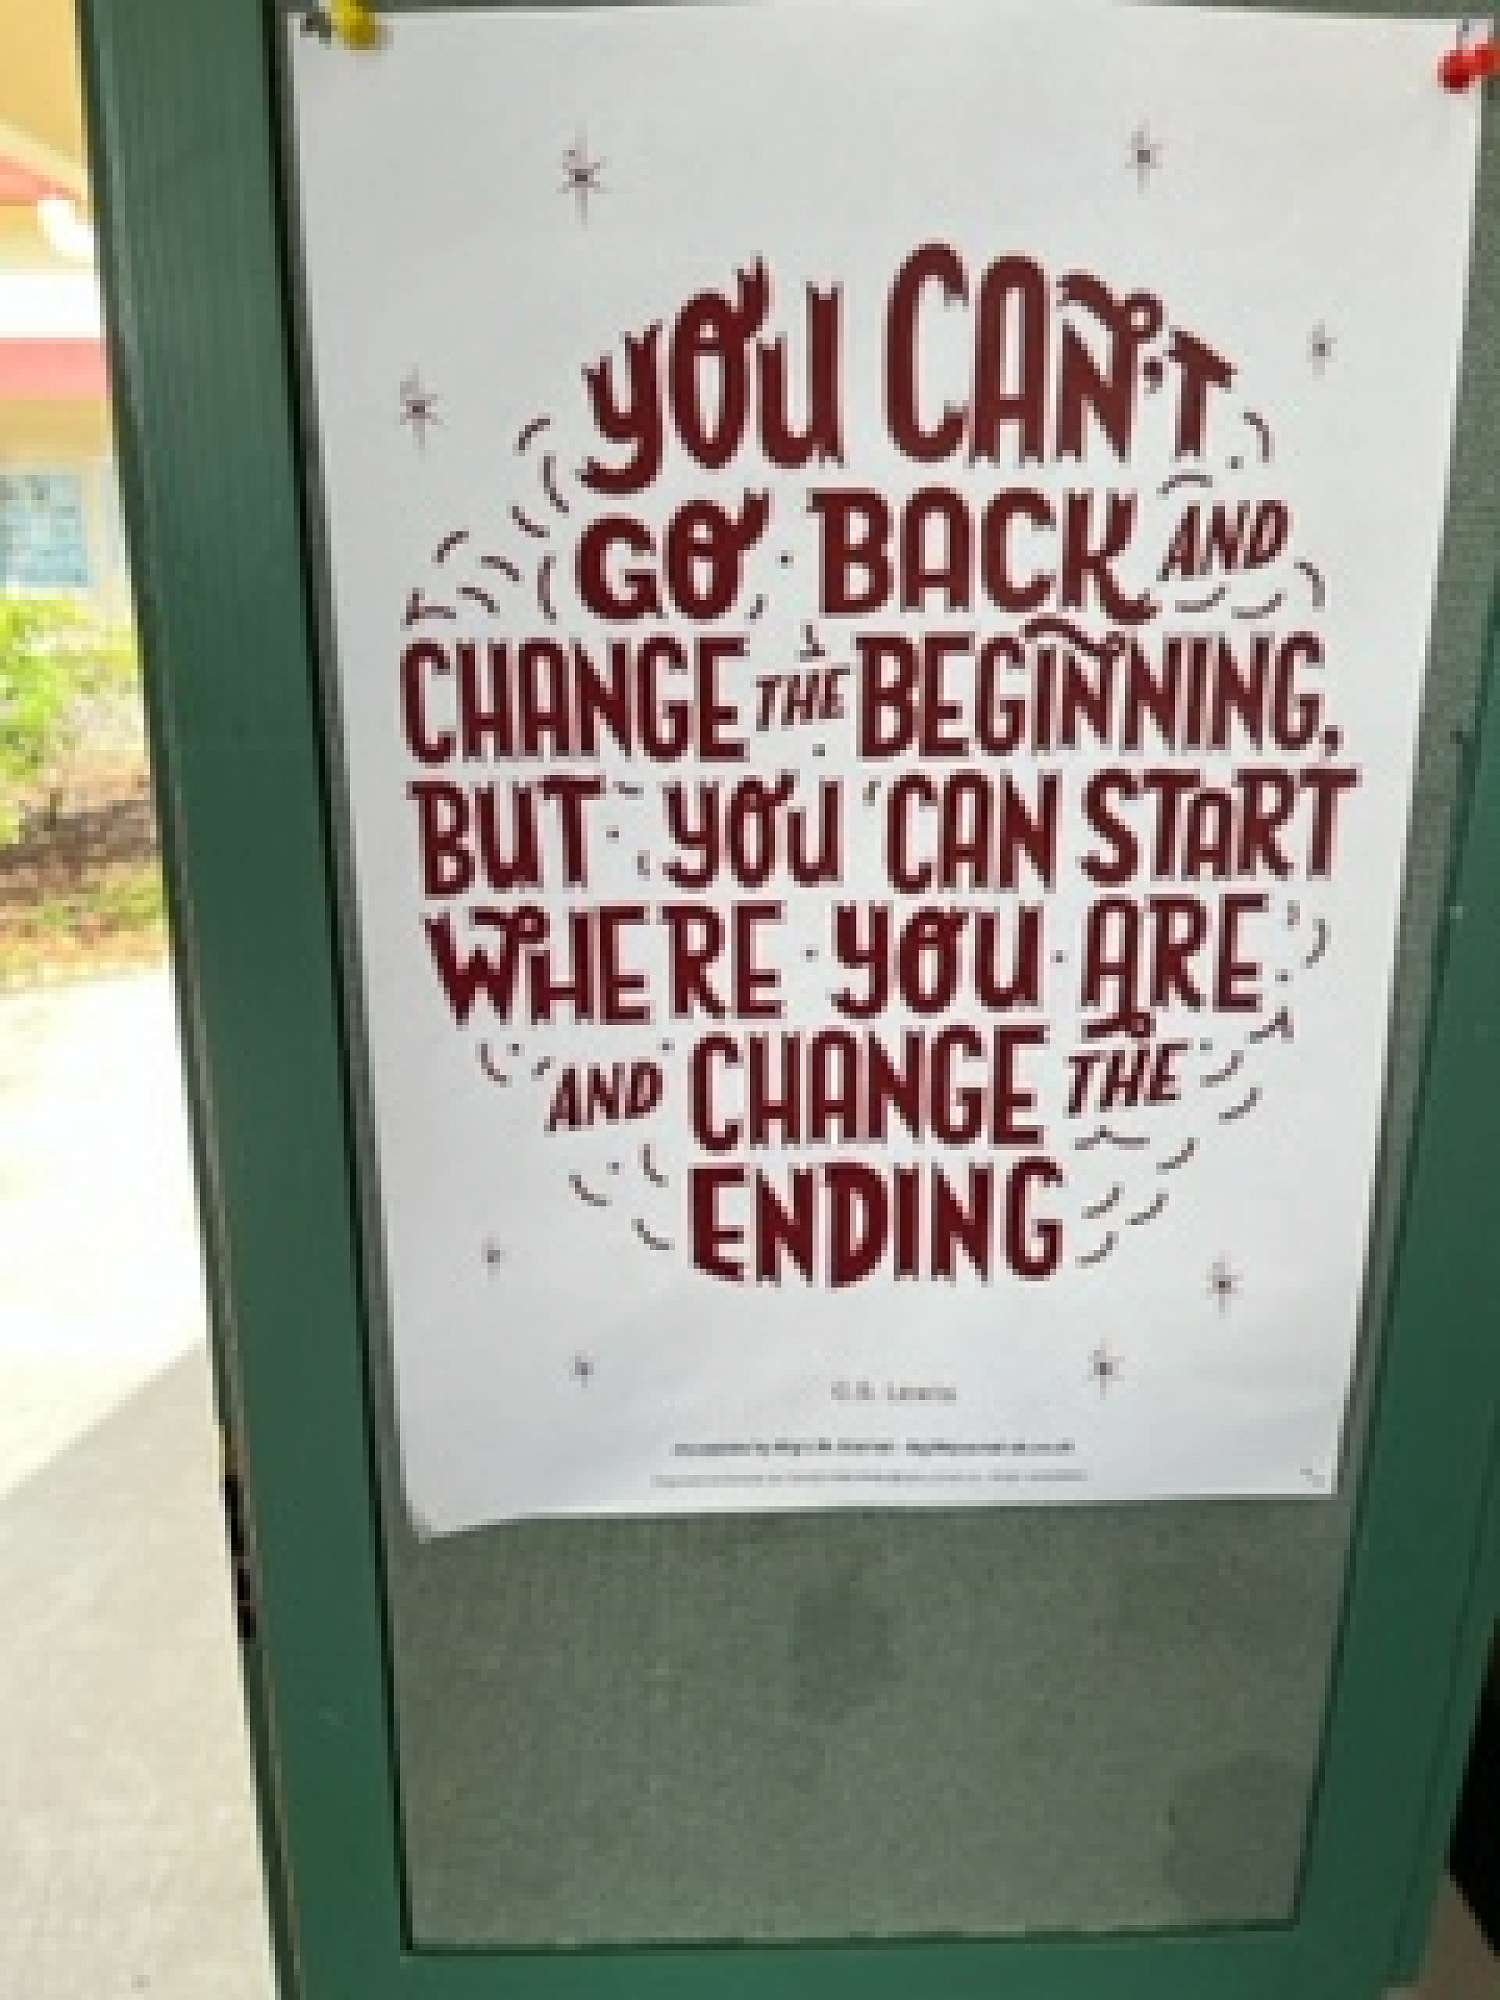 YOU CAN'T
GO BACK AND
CHANGE THE BEGINNING,
BUT YOU CAN START
WHERE YOU ARE
AND CHANGE THE
ENDING
C.S. Lewis